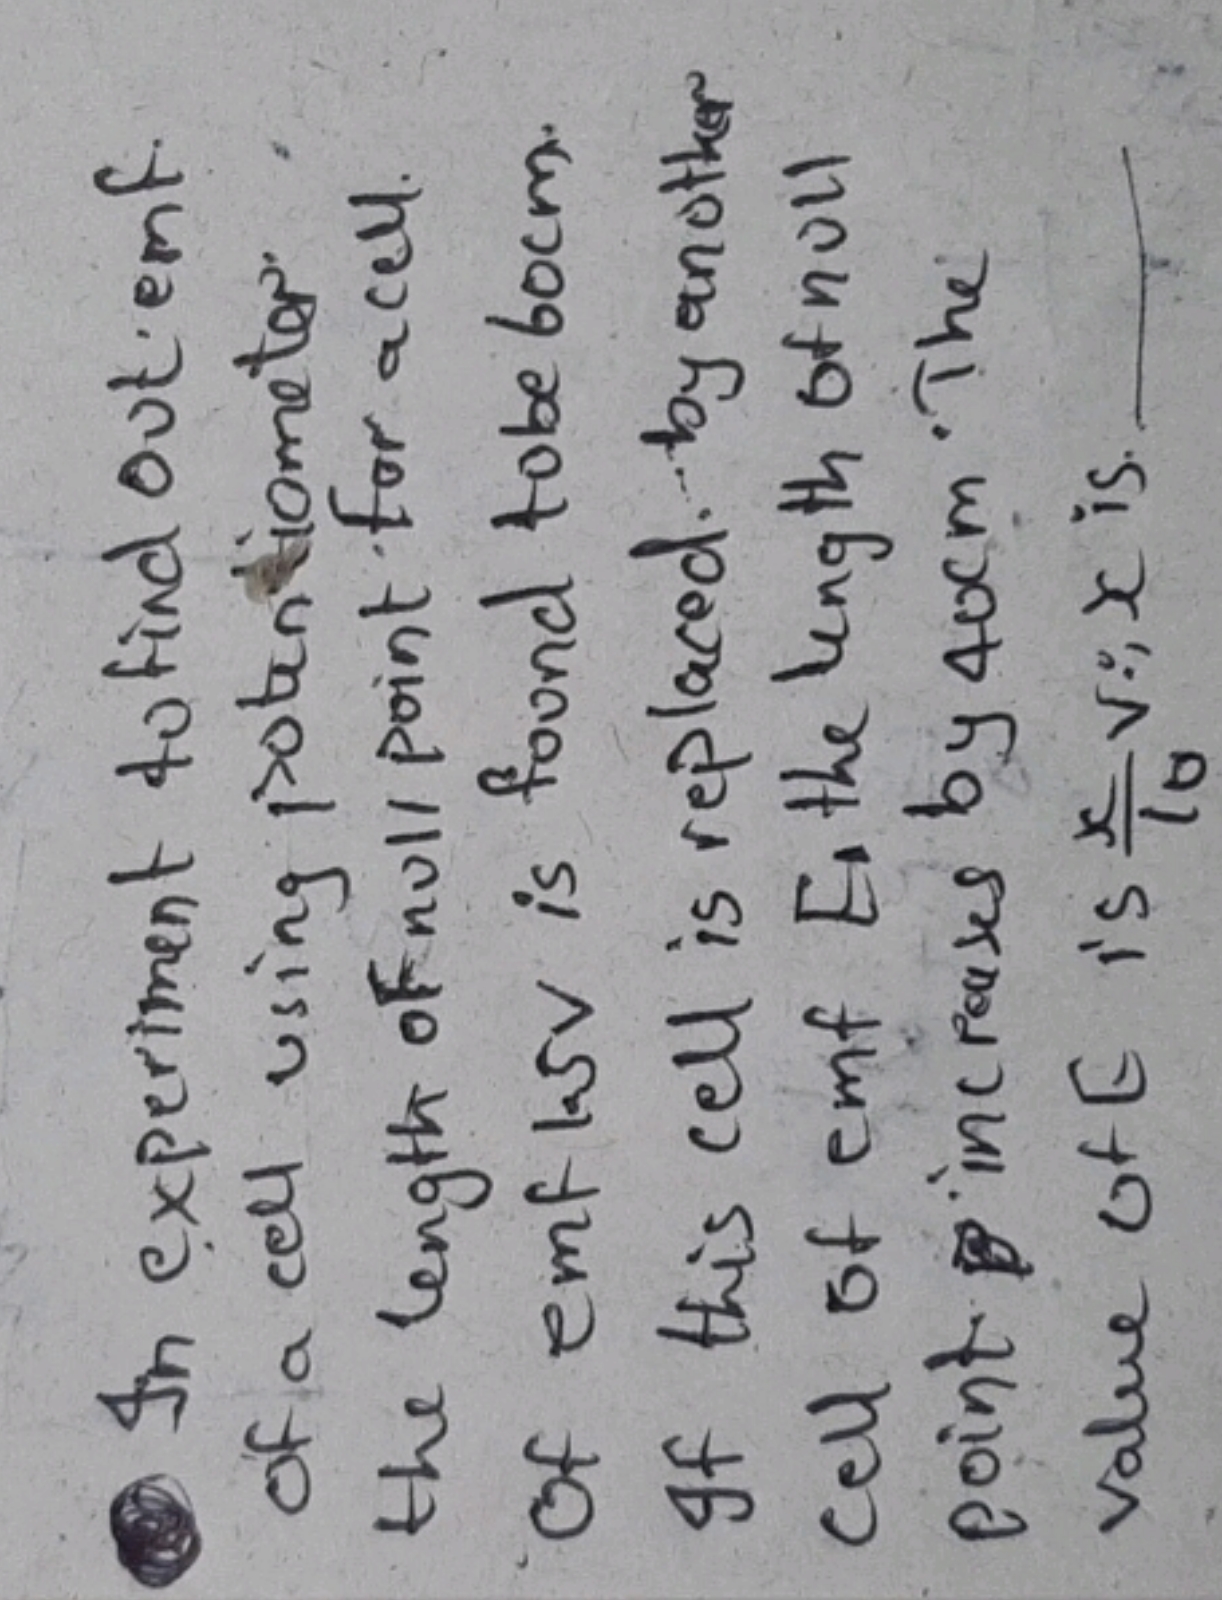 In experiment to find out emf
of a cell using potentiometer
the length of null point for a cell
of emf 1.5V is found to be 60cm.
If this cell is replaced by another
cell of emf E, the length of null
point increases by 40cm. The
value of E is x/10 V; x is